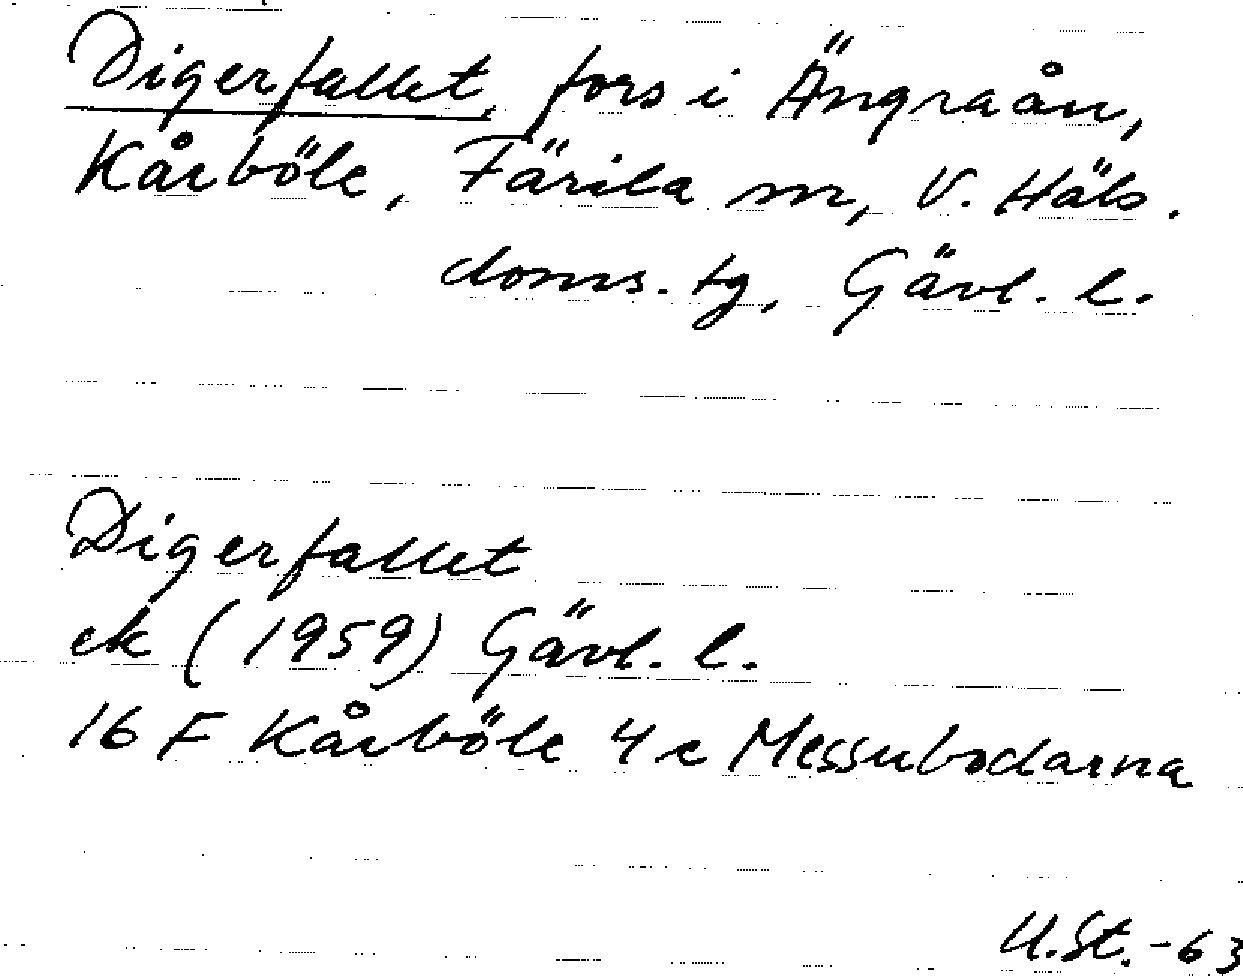 Digerfallet, fors i Ängraån,
Kårböle, Färila sn, V. Häls.
doms. tg, Gävl. l.
Digerfallet
ek (1959) Gävl. l.
16 F Kårböle 4 c Messubodarna
U.St.-63